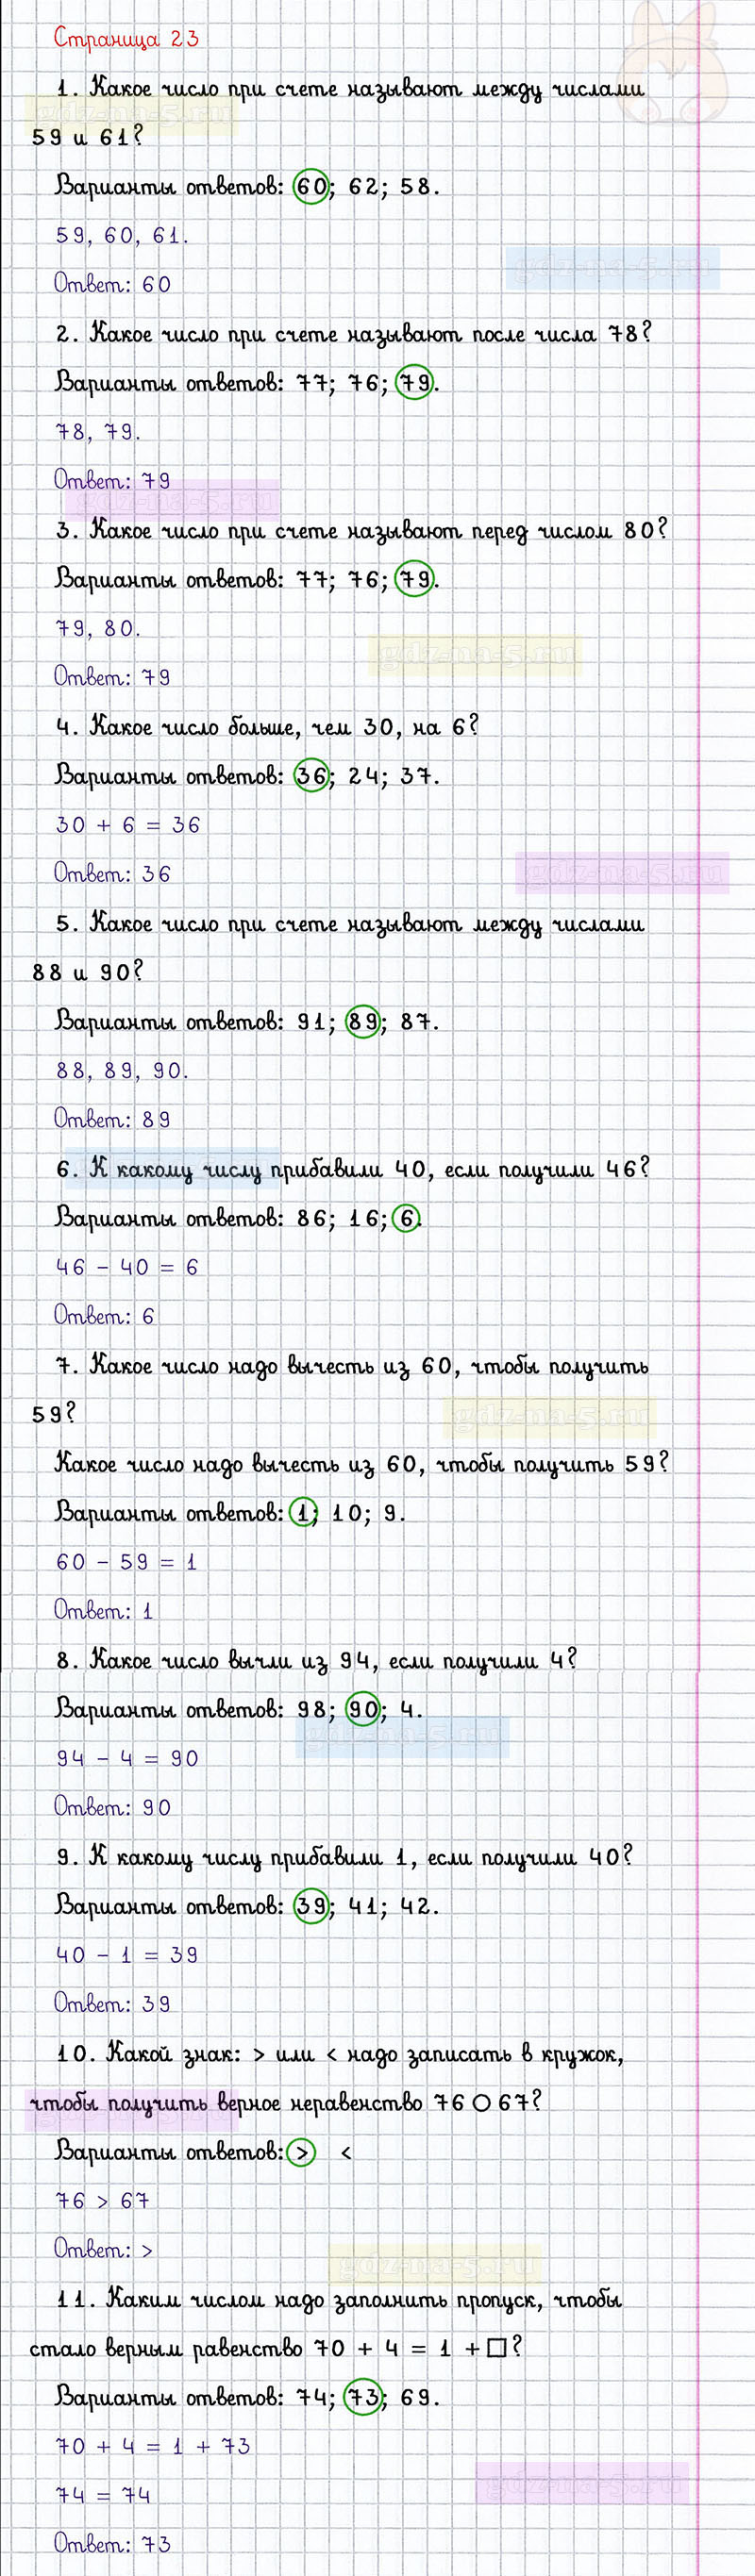 Страница 23
1. Какое число при счете называют между числами
59 и 61?
Варианты ответов: 60; 62; 58.
59, 60, 61.
Ответ: 60
2. Какое число при счете называют после числа 78?
Варианты ответов: 77; 76; 79.
78, 79.
Ответ: 79
3. Какое число при счете называют перед числом 80?
Варианты ответов: 77; 76; 79.
79, 80.
Ответ: 79
4. Какое число больше, чем 30, на 6?
Варианты ответов: 36; 24; 37.
30 + 6 = 36
Ответ: 36
5. Какое число при счете называют между числами
88 и 90?
Варианты ответов: 91; 89; 87.
88, 89, 90.
Ответ: 89
6. К какому числу прибавили 40, если получили 46?
Варианты ответов: 86; 16; 6.
46 - 40 = 6
Ответ: 6
7. Какое число надо вычесть из 60, чтобы получить
59?
Какое число надо вычесть из 60, чтобы получить 59?
Варианты ответов: 1; 10; 9.
60 - 59 = 1
Ответ: 1
8. Какое число вычли из 94, если получили 4?
Варианты ответов: 98; 90; 4.
94 - 4 = 90
Ответ: 90
9. К какому числу прибавили 1, если получили 40?
Варианты ответов: 39; 41; 42.
40 - 1 = 39
Ответ: 39
10. Какой знак: > или < надо записать в кружок,
чтобы получить верное неравенство 76 ○ 67?
Варианты ответов: > <
76 > 67
Ответ: >
11. Каким числом надо заполнить пропуск, чтобы
стало верным равенство 70 + 4 = 1 + □?
Варианты ответов: 74; 73; 69.
70 + 4 = 1 + 73
74 = 74
Ответ: 73
gdz-na-5.ru
gdz-na-5.ru
gdz-na-5.ru
gdz-na-5.ru
gdz-na-5.ru
gdz-na-5.ru
gdz-na-5.ru
gdz-na-5.ru
gdz-na-5.ru